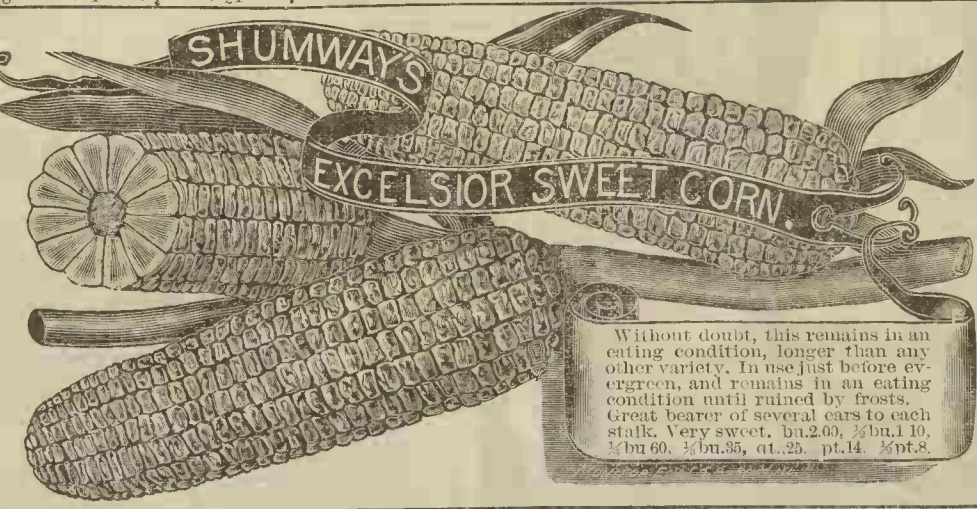 SHUMWAY'S
EXCELSIOR SWEET CORN.
Without doubt, this remains in an
eating condition, longer than any
other variety. In use just before ev-
ergreen, and remains in an eating
condition until ruined by frosts.
Great bearer of several ears to each
stalk. Very sweet. bu.2.00, ½bu.1 10,
¼bu 60. ⅛bu.35, qt..25. pt.14. ½pt.8.